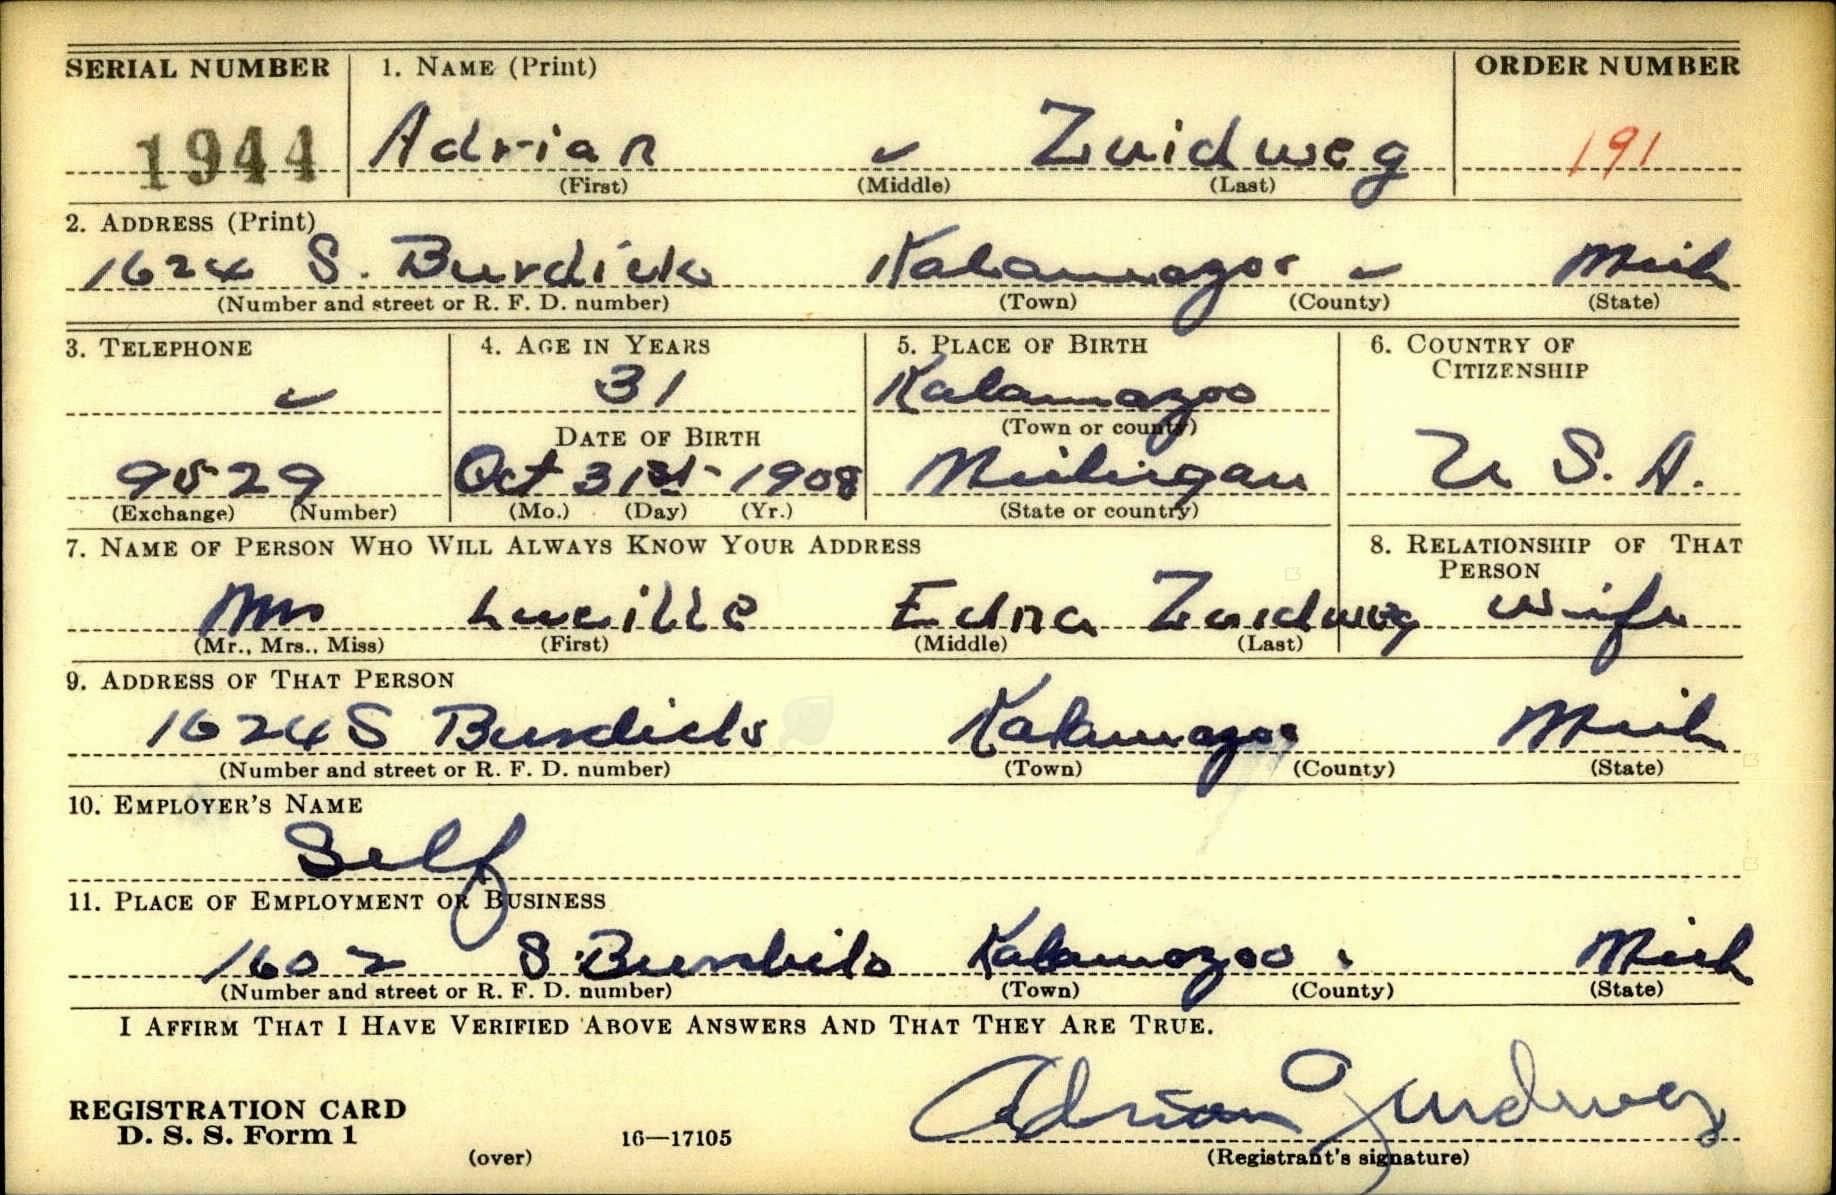 SERIAL NUMBER 1. NAME (Print) ORDER NUMBER
1944 Adrian Zuidweg 191
(First) (Middle) (Last)
2. ADDRESS (Print)
1624 S. Burdick Kalamazoo Mich
(Number and street or R. F. D. number) (Town) (County) (State)
3. TELEPHONE 4. AGE IN YEARS 5. PLACE OF BIRTH 6. COUNTRY OF CITIZENSHIP
31 Kalamazoo
DATE OF BIRTH (Town or county)
9529 Oct 31st-1908 Michigan U S. A.
(Exchange) (Number) (Mo.) (Day) (Yr.) (State or country)
7. NAME OF PERSON WHO WILL ALWAYS KNOW YOUR ADDRESS 8. RELATIONSHIP OF THAT PERSON
Mrs Lucille Edna Zuidweg Wife
(Mr., Mrs., Miss) (First) (Middle) (Last)
9. ADDRESS OF THAT PERSON
1624 S Burdick Kalamazoo Mich
(Number and street or R. F. D. number) (Town) (County) (State)
10. EMPLOYER'S NAME
Self
11. PLACE OF EMPLOYMENT OR BUSINESS
1602 S. Burdick Kalamazoo Mich
(Number and street or R. F. D. number) (Town) (County) (State)
I AFFIRM THAT I HAVE VERIFIED ABOVE ANSWERS AND THAT THEY ARE TRUE.
Adrian Zuidweg
REGISTRATION CARD
D. S. S. Form 1 16—17105
(over) (Registrant's signature)